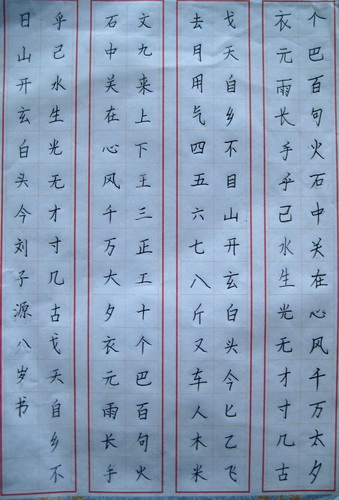 个巴百句火石中关在心风千万太夕
衣元雨长手乎己水生光无才寸几古
戈天自乡不目山开玄白头今匕乙飞
去月用气四五六七八斤又车人木米
文九来上下主三正工十个巴百句火
石中关在心风千万大夕衣元雨长手
乎己水生光无才寸几古戈天自乡不
日山开玄白头今刘子源八岁书